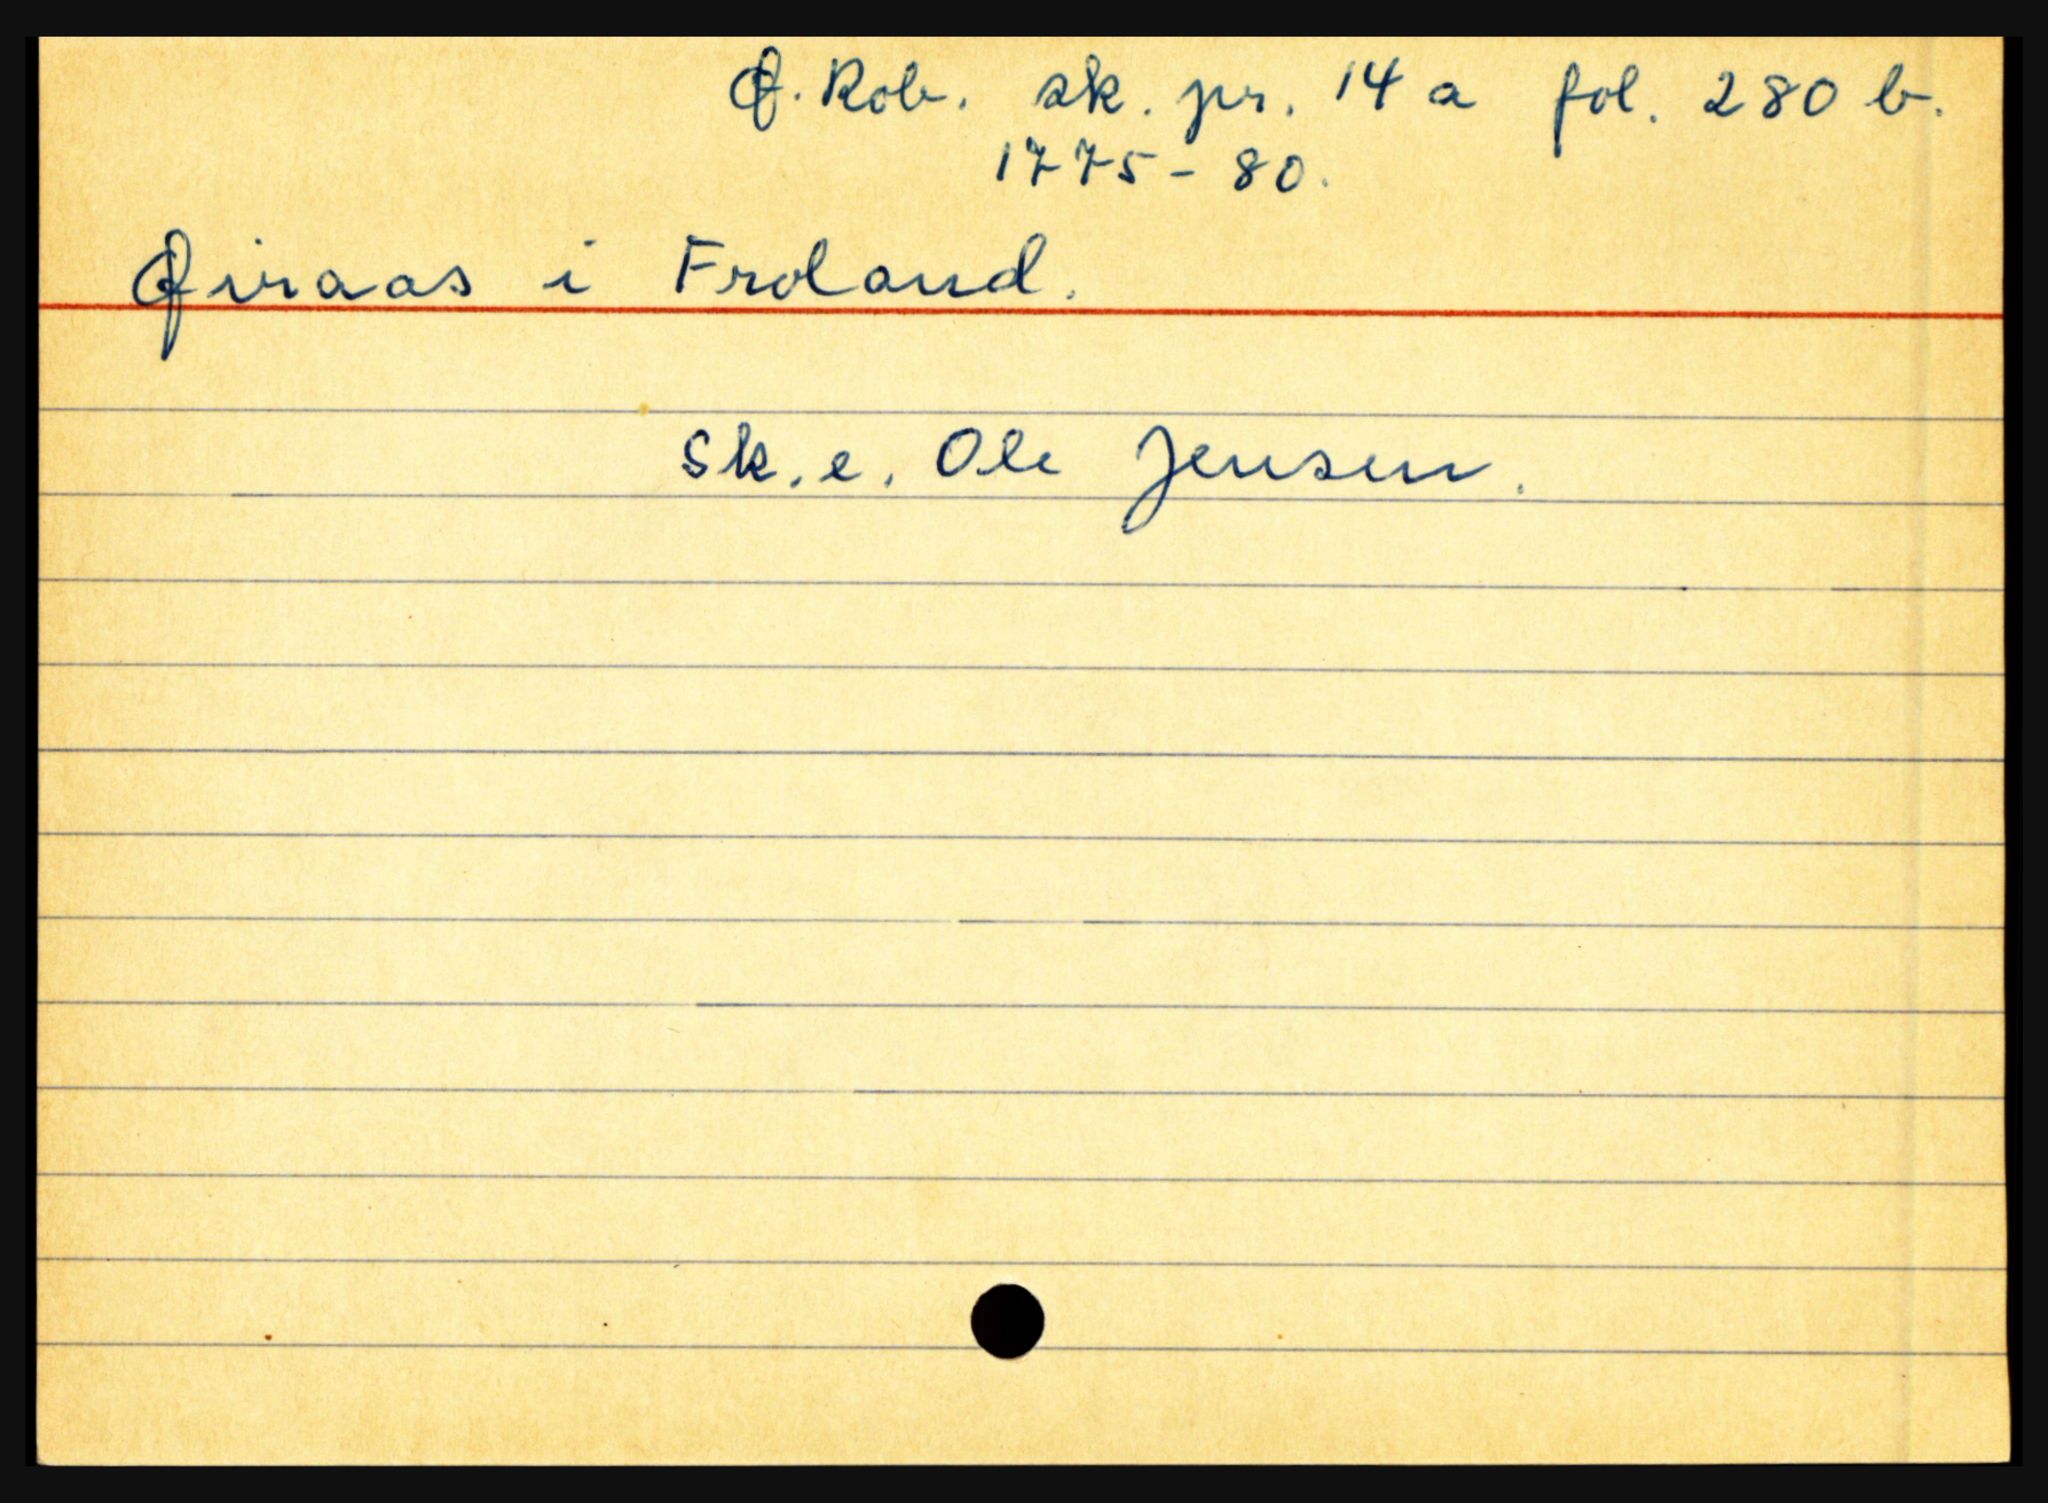 Ø. Rob. sk. pr. 14 a fol. 280 b.
1775-80.
Øvraas i Froland.
Sk. e. Ole Jensen.